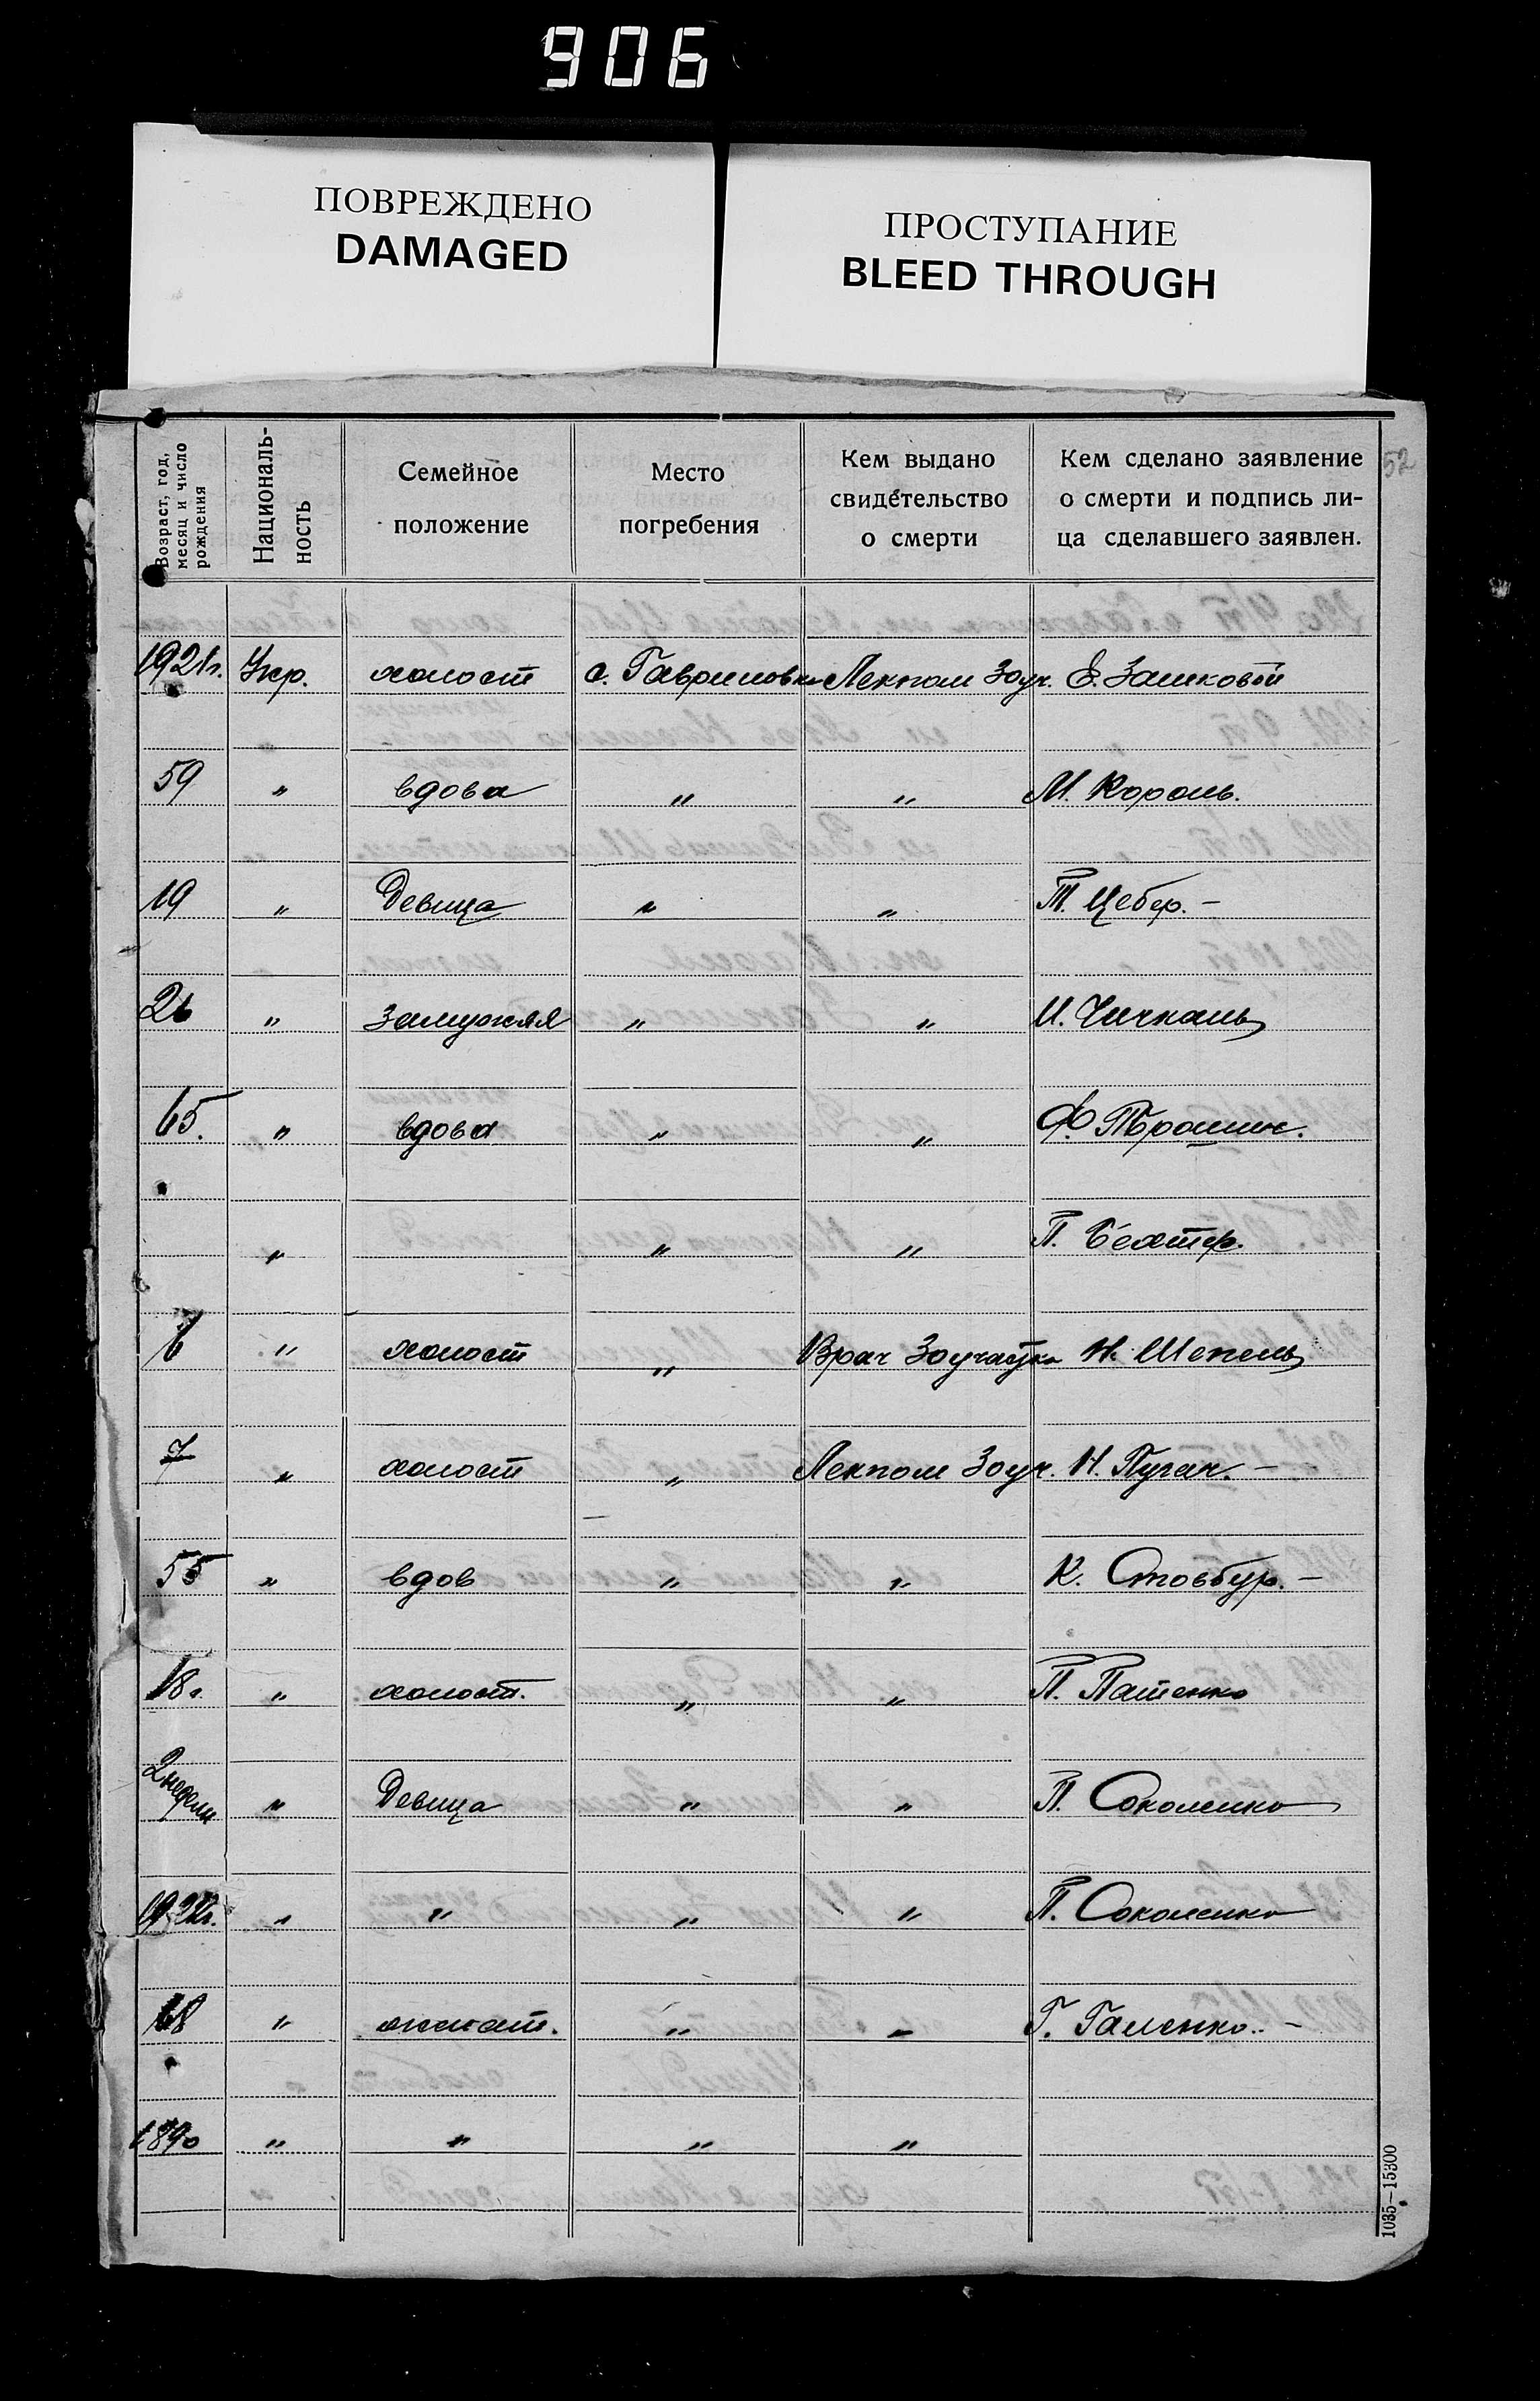 906
ПОВРЕЖДЕНО
DAMAGED
ПРОСТУПАНИЕ
BLEED THROUGH
52
Возраст, год,
месяц и число
рождения
Националь-
ность
Семейное
положение
Место
погребения
Кем выдано
свидетельство
о смерти
Кем сделано заявление
о смерти и подпись ли-
ца сделавшего заявлен.
1921г. Укр. холост с. Гавриловка Лекпом Зоуч. Е.
59 " вдова " " М. Король.
19 " Девица " " Т. Цебер. –
26 " Замужняя " " И. Чичкань
65. " вдова " " Ф.
" " " П. Бехтер.
6 " холост " Врач Зоучастка Н. Шепель
7 " холост " Лекпом Зоуч. Н. Пугач. –
55 " вдов " " К. Стовбур. –
18г. " холост. " " П. Пащенко
2 недели " Девица " " П. Соколенко
" " " " П. Соколенко
68 " женат. " " Г. Галенко. –
1890 " " " "
1035—15300